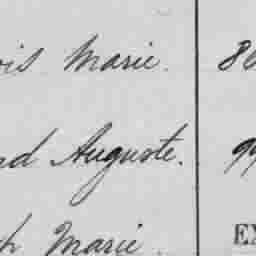 ois Marie. 86
nd Auguste. 99
ph Marie. EX